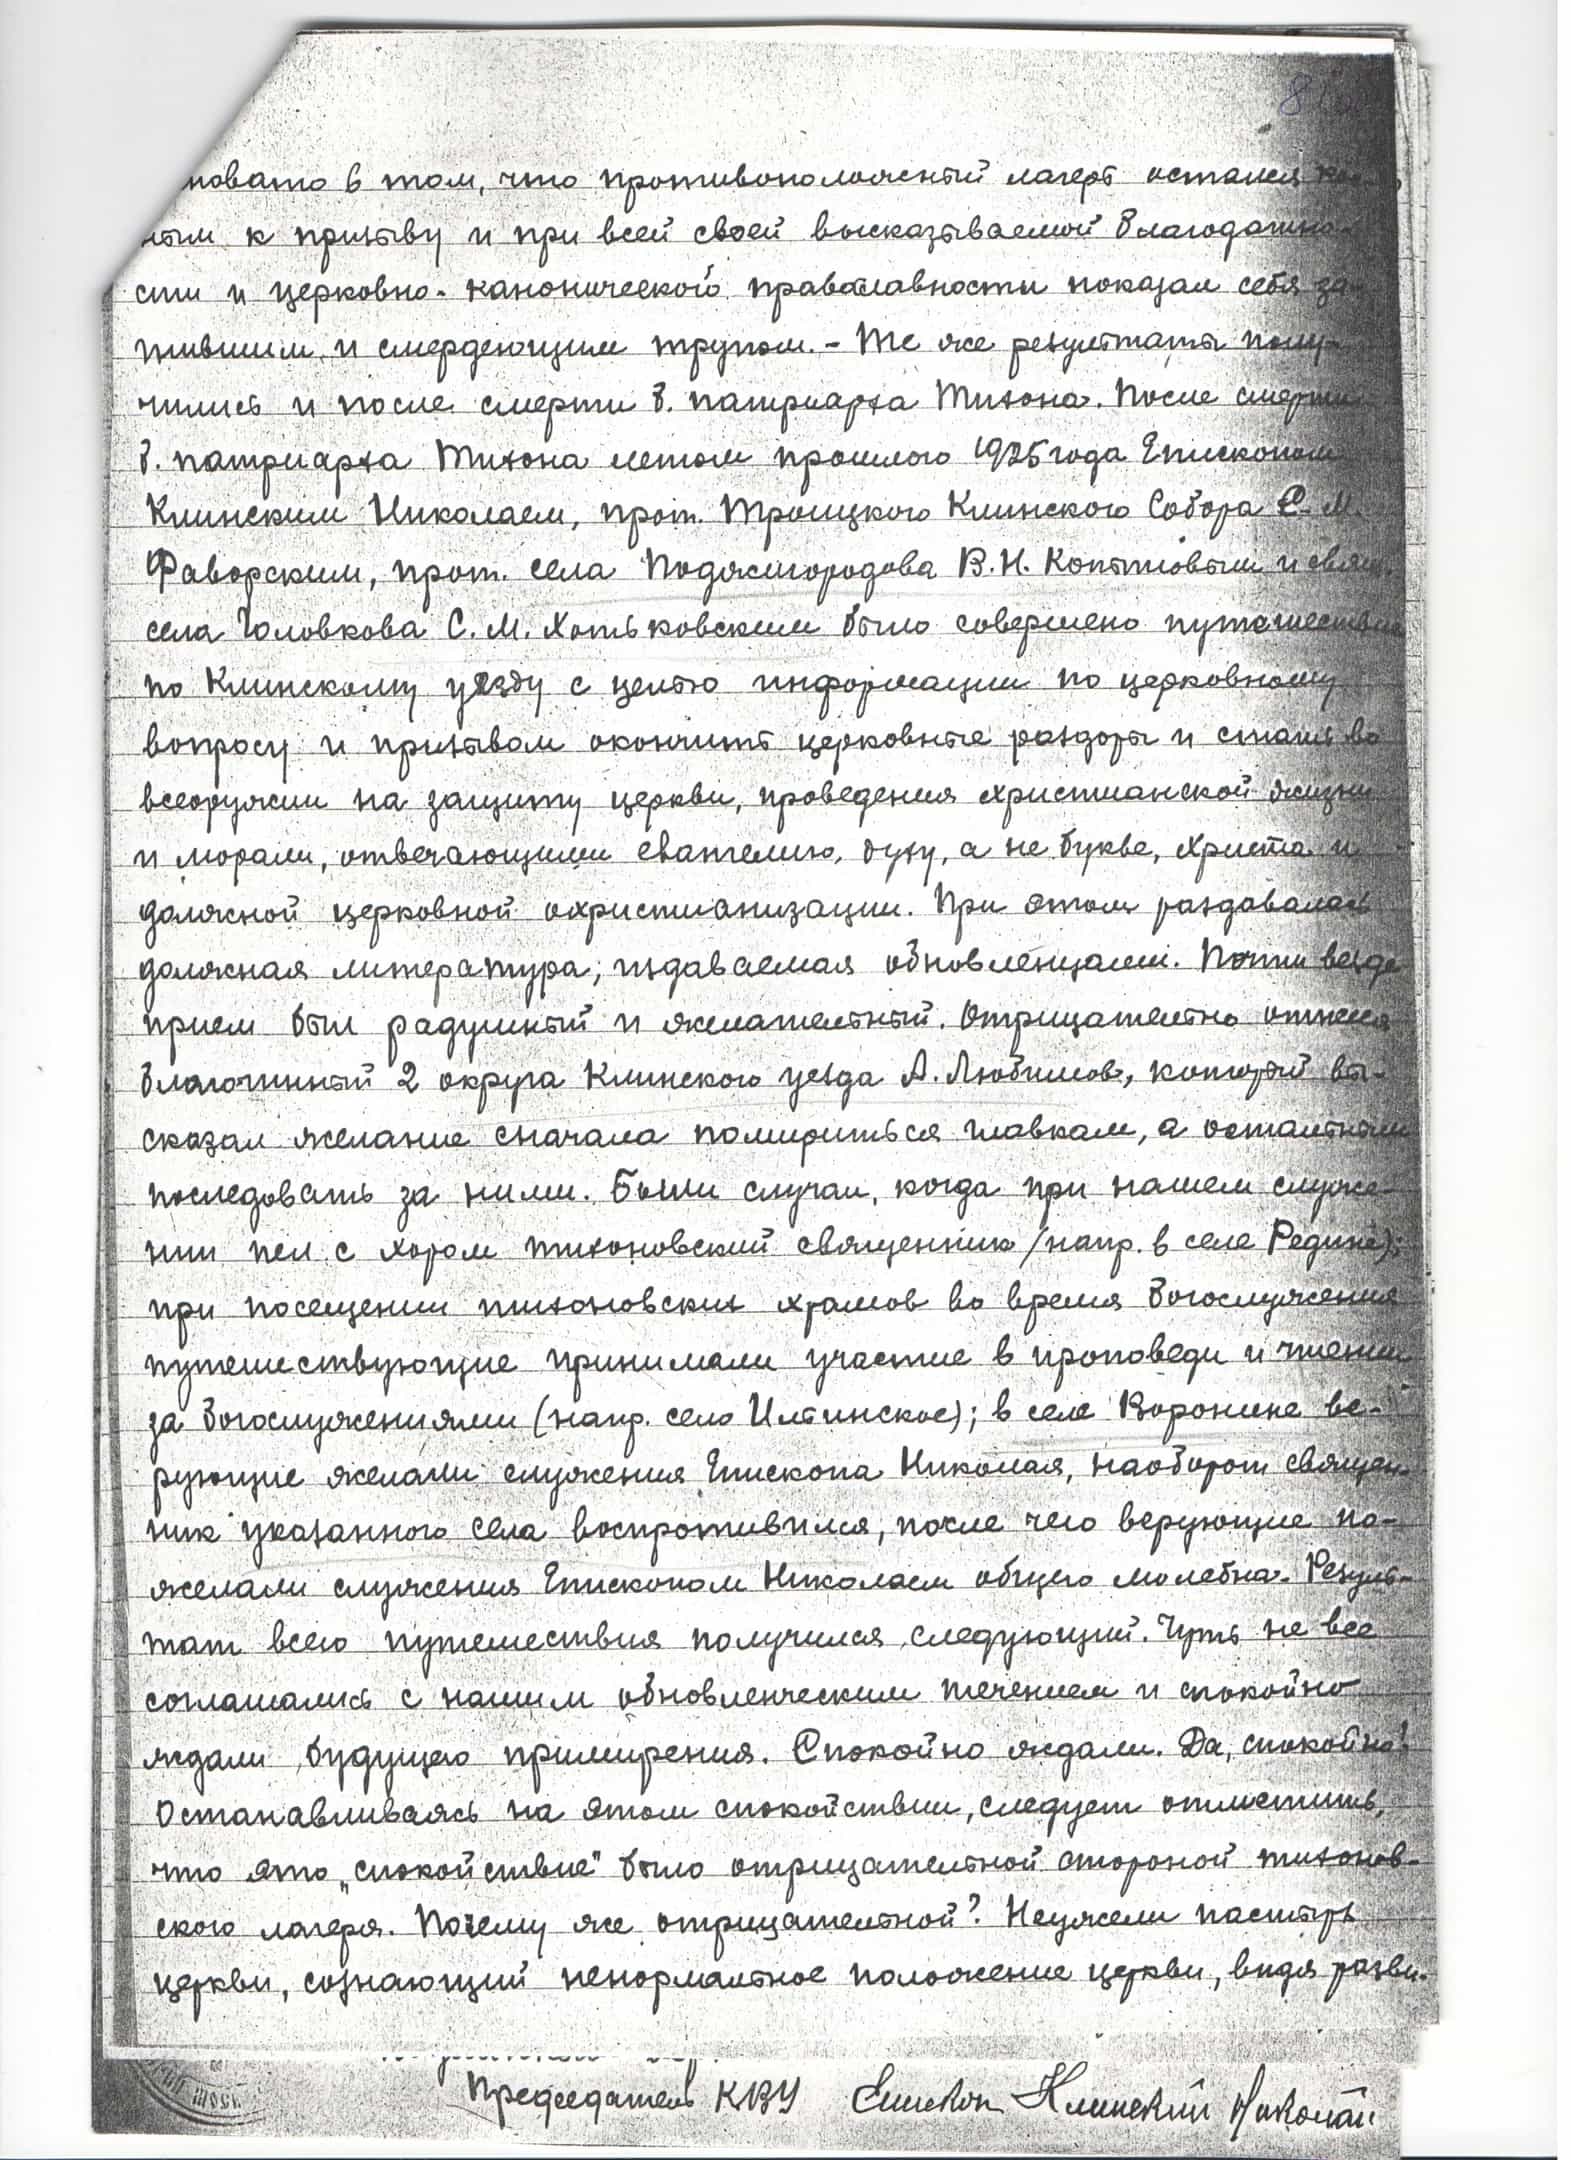 новато в том, что противоположный лагерь остался
к призыву и при всей своей высказываемой благодатно-
сти и церковно-канонической православности показал себя за-
гнившим и смердеющим трупом. - Те же результаты полу-
чились и после смерти б. патриарха Тихона. После смерти
б. патриарха Тихона летом прошлого 1925 года Епископом
Клинским Николаем, прот. Троицкого Клинского Собора С. М.
Фаворским, прот. села Поджигородова В. Н. Копьтовым и свящ.
села Головкова С. М. Хотьковским было совершено путешествие
по Клинскому уезду с целью информации по церковному
вопросу и призывом окончить церковные раздоры и стать во
всеоружии на защиту церкви, проведения христианской жизни
и морали, отвечающими евангелию, духу, а не букве, Христа и
должной церковной охристианизации. При этом раздавалась
должная литература, издаваемая обновленцами. Почти везде
прием был радушный и желательный. Отрицательно отнесся
благочинный 2 округа Клинского уезда А. Любимов, который вы-
сказал желание сначала помириться главкам, а остальным
последовать за ними. Были случаи, когда при нашем служе-
нии пел с хором тихоновский священник /напр. в селе Редине);
при посещении тихоновских храмов во время богослужения
путешествующие принимали участие в проповеди и чтении
за богослужениями (напр. село Ильинское); в селе Воронине ве-
рующие желали служения Епископа Николая, наоборот священ-
ник указанного села воспротивился, после чего верующие по-
желали служения Епископом Николаем общего молебна. Резуль-
тат всего путешествия получился следующий. Чуть не все
соглашались с нашим обновленческим течением и спокойно
ждали будущего примирения. Спокойно ждали. Да, спокойно!
Останавливаясь на этом спокойствии, следует отметить,
что это „спокойствие" было отрицательной стороной тихонов-
ского лагеря. Почему же отрицательной? Неужели пастырь
церкви, сознающий ненормальное положение церкви, видя разви-
Председатель КВУ Епископ Клинский Николай